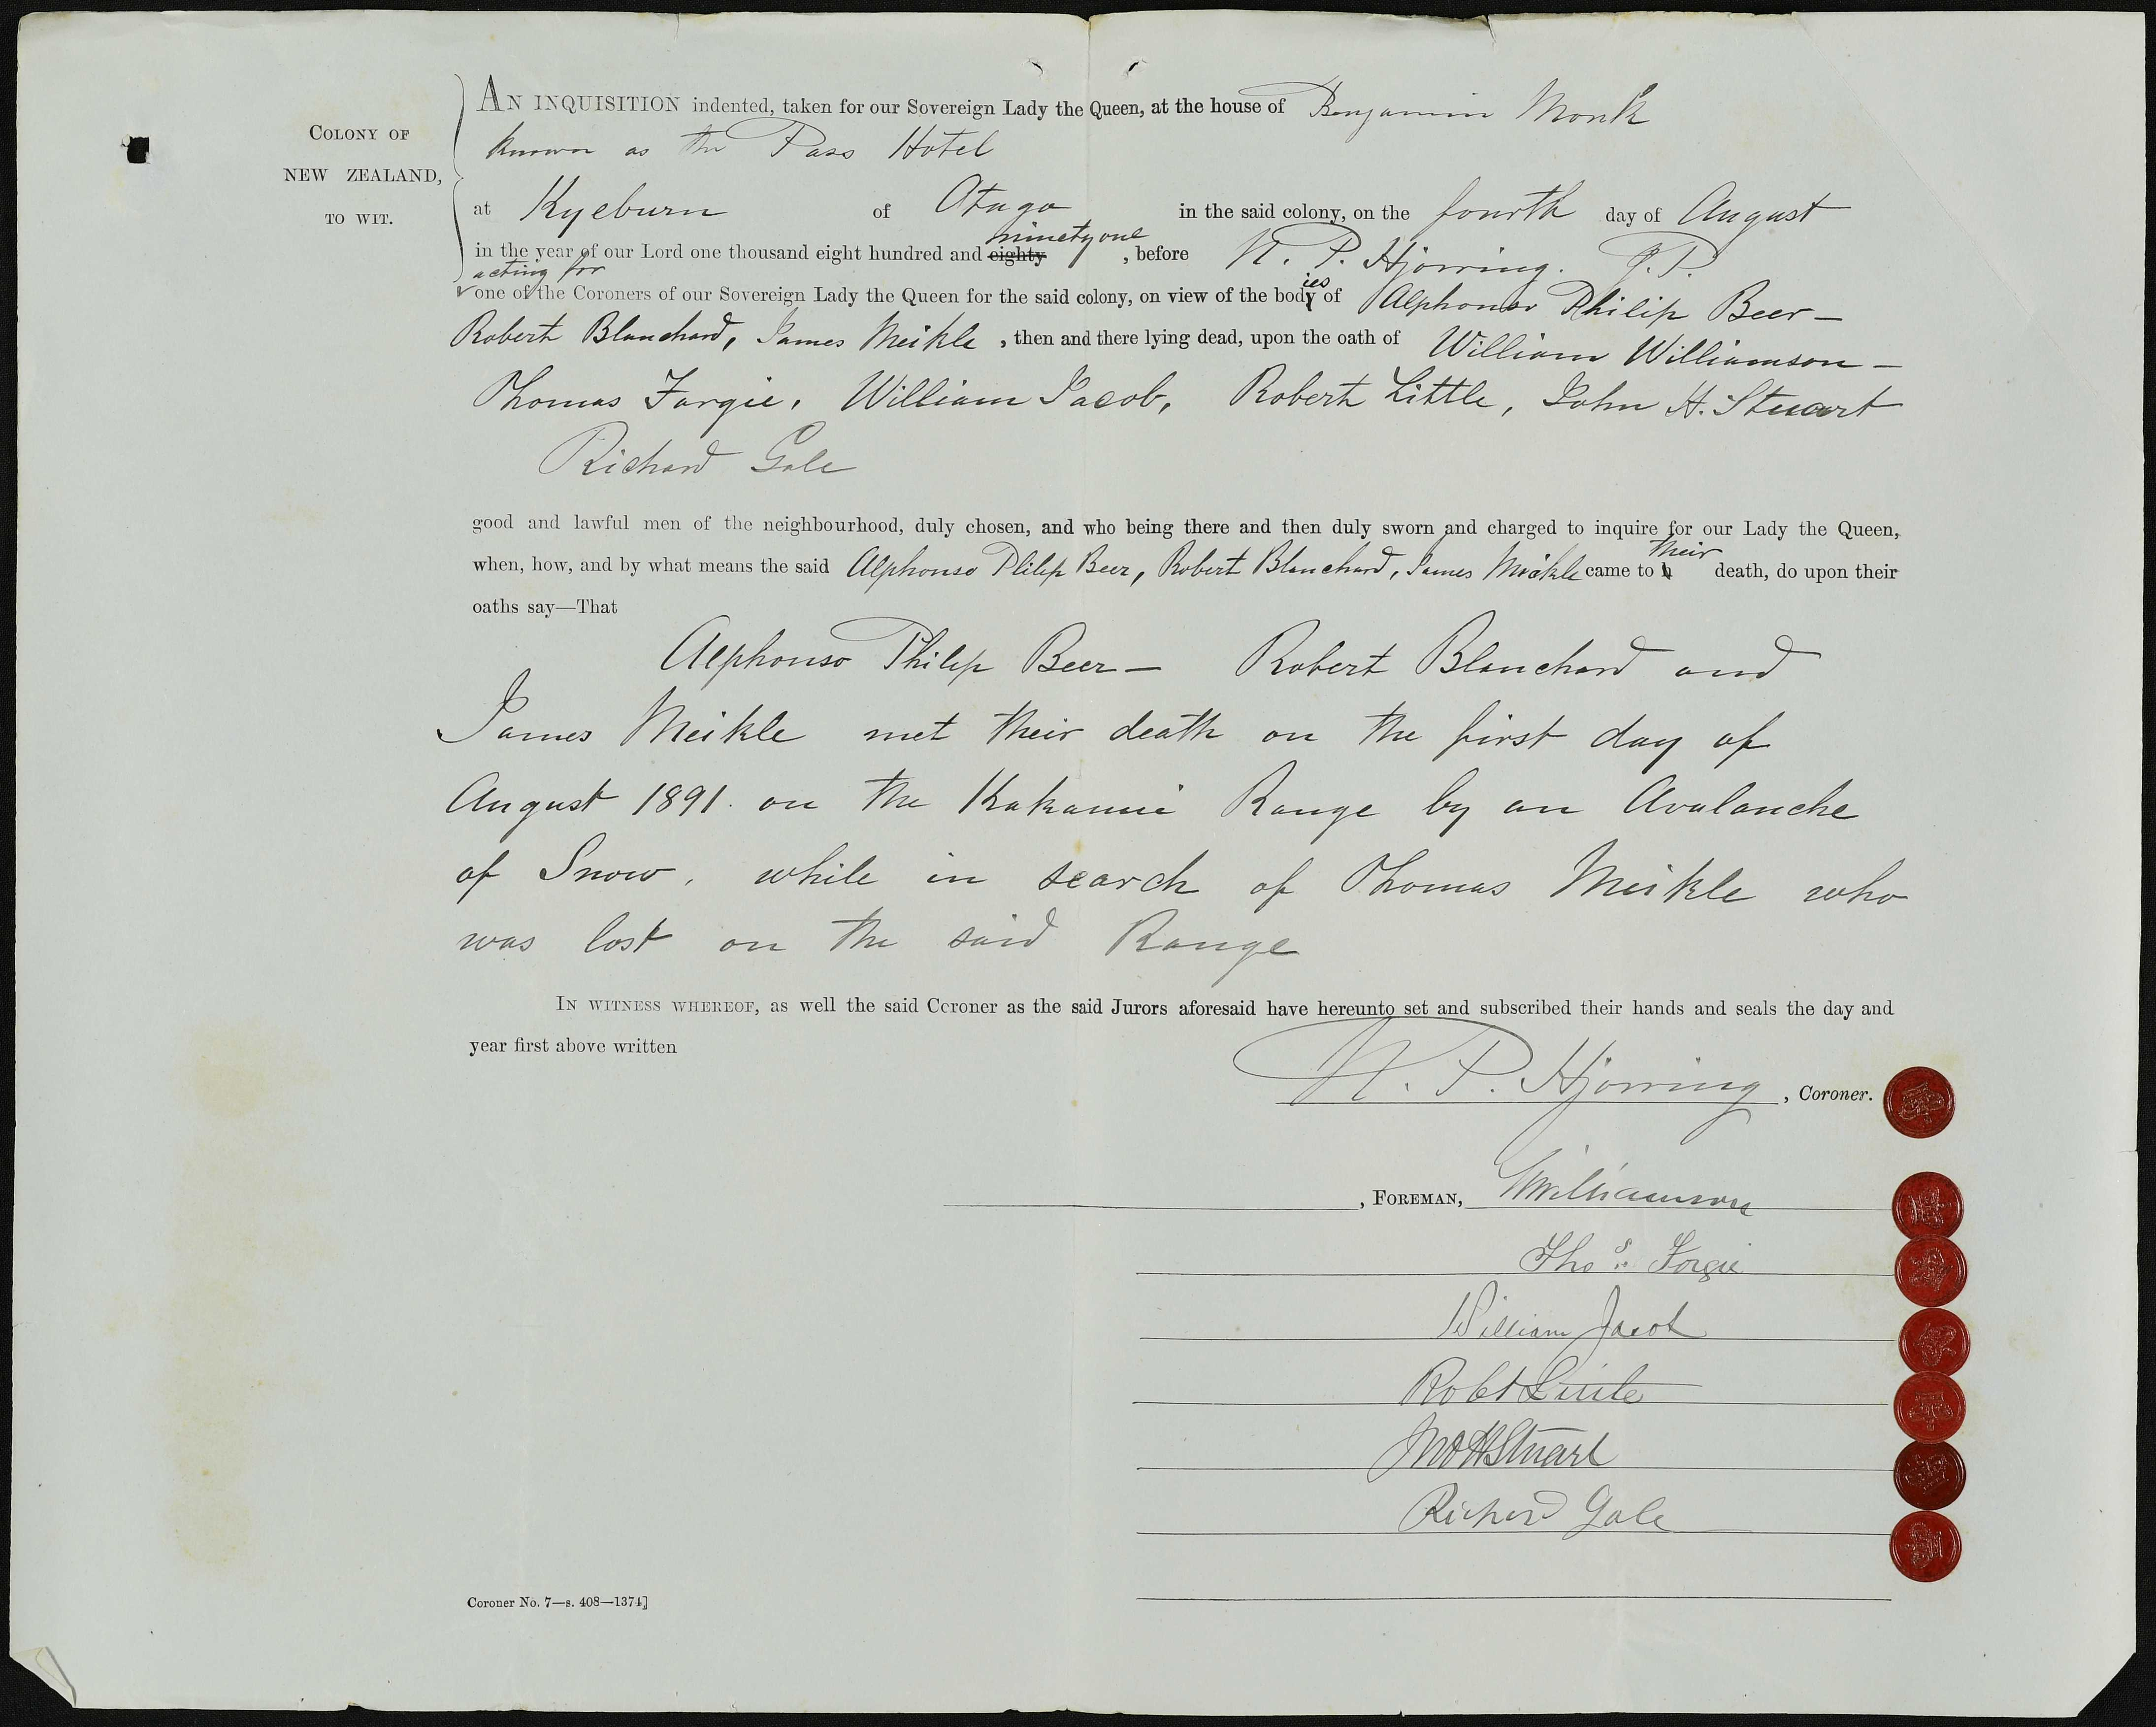 COLONY OF
NEW ZEALAND,
TO WIT.
AN INQUISITION indented, taken for our Sovereign Lady the Queen, at the house of Benjamin Monk
known as the Pass Hotel
at Kyeburn of Otago in the said colony, on the fourth day of August
in the year of our Lord one thousand eight hundred and eighty ninety one, before N. P. Hjorring. J.P.
acting for
one of the Coroners of our Sovereign Lady the Queen for the said colony, on view of the bodyies of Alphonso Philip Beer—
Robert Blanchard, James Meikle, then and there lying dead, upon the oath of William Williamson—
Thomas Forgie, William Jacob, Robert Little, John H. Stuart
Richard Gale
good and lawful men of the neighbourhood, duly chosen, and who being there and then duly sworn and charged to inquire for our Lady the Queen,
when, how, and by what means the said Alphonso Philip Beer, Robert Blanchard, James Meikle came to h their death, do upon their
oaths say—That
Alphonso Philip Beer— Robert Blanchard and
James Meikle met their death on the first day of
August 1891. on the Kakanui Range by an Avalanche
of Snow, while in search of Thomas Meikle who
was lost on the said Range
IN WITNESS WHEREOF, as well the said Coroner as the said Jurors aforesaid have hereunto set and subscribed their hands and seals the day and
year first above written
N. P. Hjorring, Coroner.
, FOREMAN, Williamson
Thos. Forgie
William Jacob
Robt Little
Jno H Stuart
Richard Gale
Coroner No. 7—s. 408—1374]